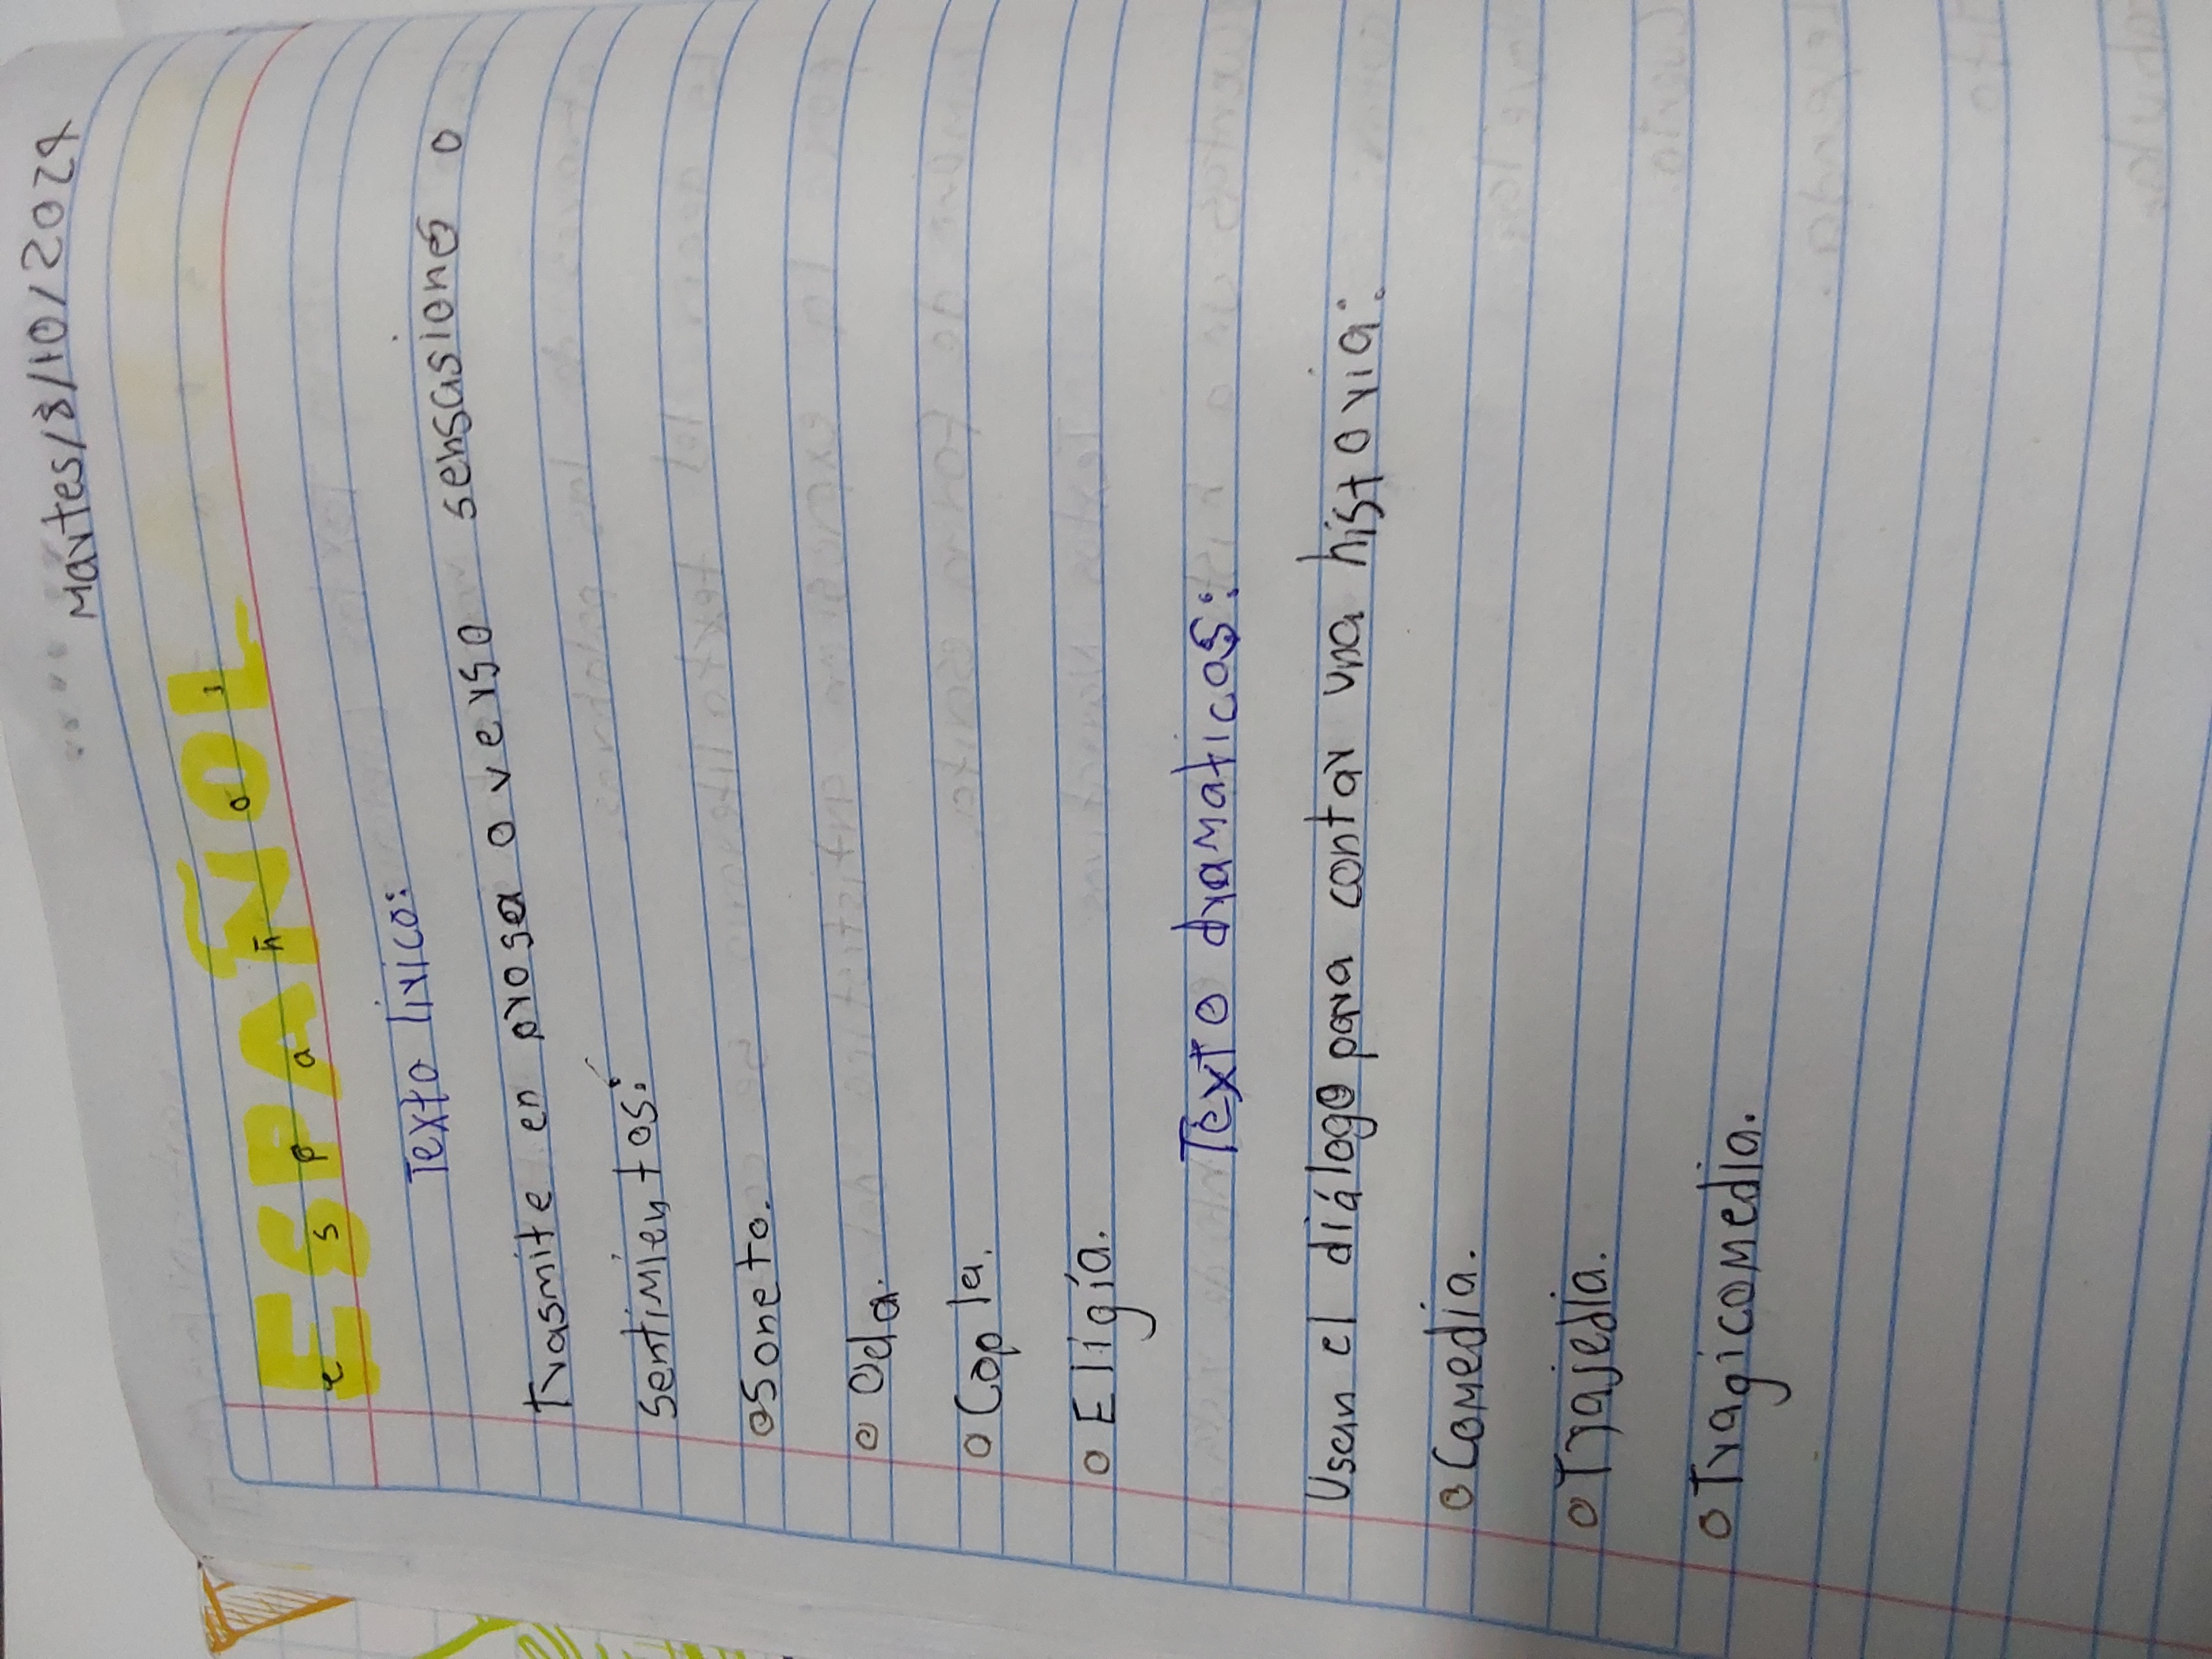 Martes/8/10/2024
ESPAÑOL
e s p a ñ o l
Texto lirico:
Trasmite en prosa o verso sensasiones o
sentimientos:
o Soneto.
o Oda.
o Copla.
o Eligía.
Texto dramaticos:
Usan el diálogo para contar una historia:
o Comedia.
o Trajedia.
o Tragicomedia.